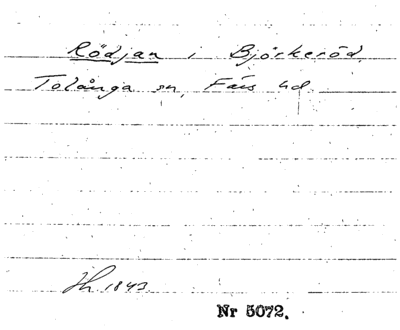 Rödjan i Björkeröd,
Tolånga sn, Färs hd.
Hh 1843
Nr 5072.